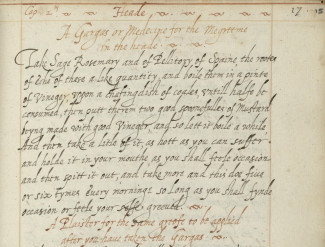 Cap: 2m Heade 17
A Gargas or Medecyne for the Megreeme
in the heade
Take Sage Rosemary and of Pellitory of Spaine the rootes
of eche of these a like quantity, and boile them in a pinte
of Vineger, uppon a chafingdish of coales untill halfe be
consumed, then putt therein two good spoonefulles of Mustard
beyng made with good Vineger, and so lett it boile a while
And then take a litle of it, as hott as you can suffer
and holde it in your mouthe as you shall feele occasion
and then spitt it out, and take more and this doe five
or six tymes every morninge so long as you shall fynde
occasion or feele your selfe greeved
A Plaister for the same greefe to be applied
after you have taken the Gargas